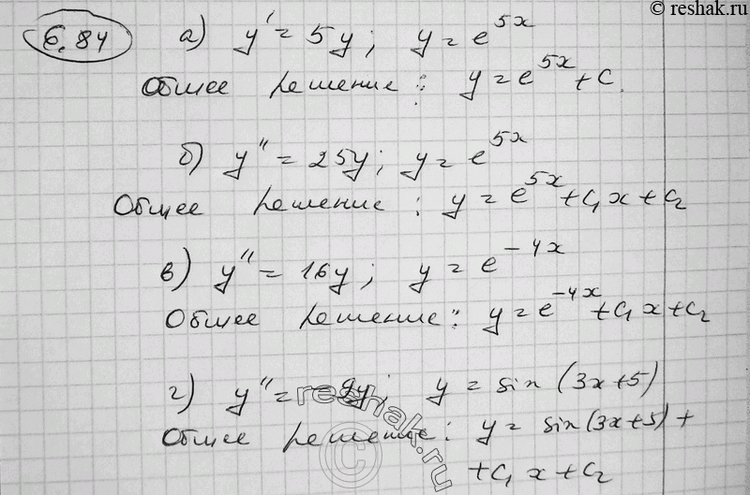 © reshak.ru
6.84 а) y' = 5y; y = e^{5x}
Общее решение: y = e^{5x} + C.
б) y'' = 25y; y = e^{5x}
Общее решение: y = e^{5x} + C₁x + C₂
в) y'' = 16y; y = e^{-4x}
Общее решение: y = e^{-4x} + C₁x + C₂
г) y'' = -9y; y = sin (3x+5)
Общее решение: y = sin(3x+5) +
+ C₁x + C₂
reshak.ru
©